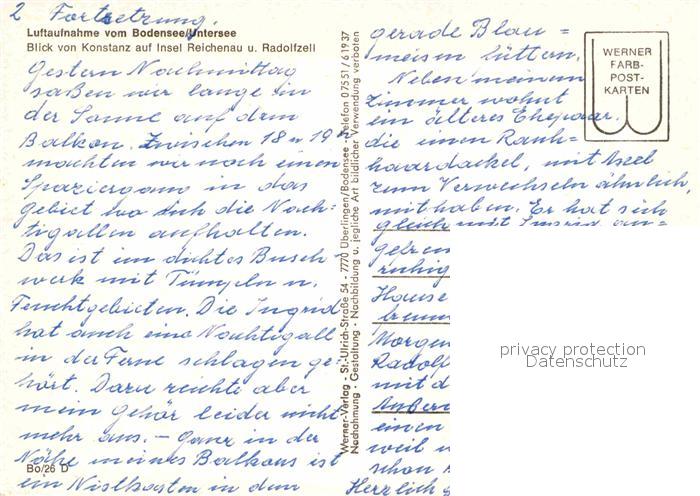 2 Fortsetzung.
Luftaufnahme vom Bodensee/Untersee
Blick von Konstanz auf Insel Reichenau u. Radolfzell
Gestern Nachmittag
saßen wir lange in
der Sonne auf dem
Balkon. Zwischen 18 u 19h
machten wir noch einen
Spaziergang in das
Gebiet wo sich die Nach-
tigallen aufhalten.
Das ist ein dichtes Busch-
werk mit Tümpeln u.
Feuchtgebieten. Die Ingrid
hat auch eine Nachtigall
in der Ferne schlagen ge-
hört. Dazu reichte aber
mein Gehör leider nicht
mehr aus. – Ganz in der
Nähe meines Balkons ist
ein Nistkasten in dem
Bo/26 D
Werner-Verlag - St.-Ulrich-Straße 54 - 7770 Überlingen/Bodensee - Telefon 07551/61937
Nachahmung - Gestaltung - Nachbildung u. jegliche Art bildlicher Verwendung verboten
gerade Blau=
meisen füttern.
Neben meinem
Zimmer wohnt
ein älteres Ehepaar.
die einen Rauh-
haardackel, mit Axel
zum Verwechseln ähnlich,
mithaben. Er hat sich
gleich mit Ingrid an-
gefreun
ruhig
Hause
Morgen
Radolf
mit d
einen
weil u
schon
Herzlich
WERNER
FARB-
POST-
KARTEN
privacy protection
Datenschutz